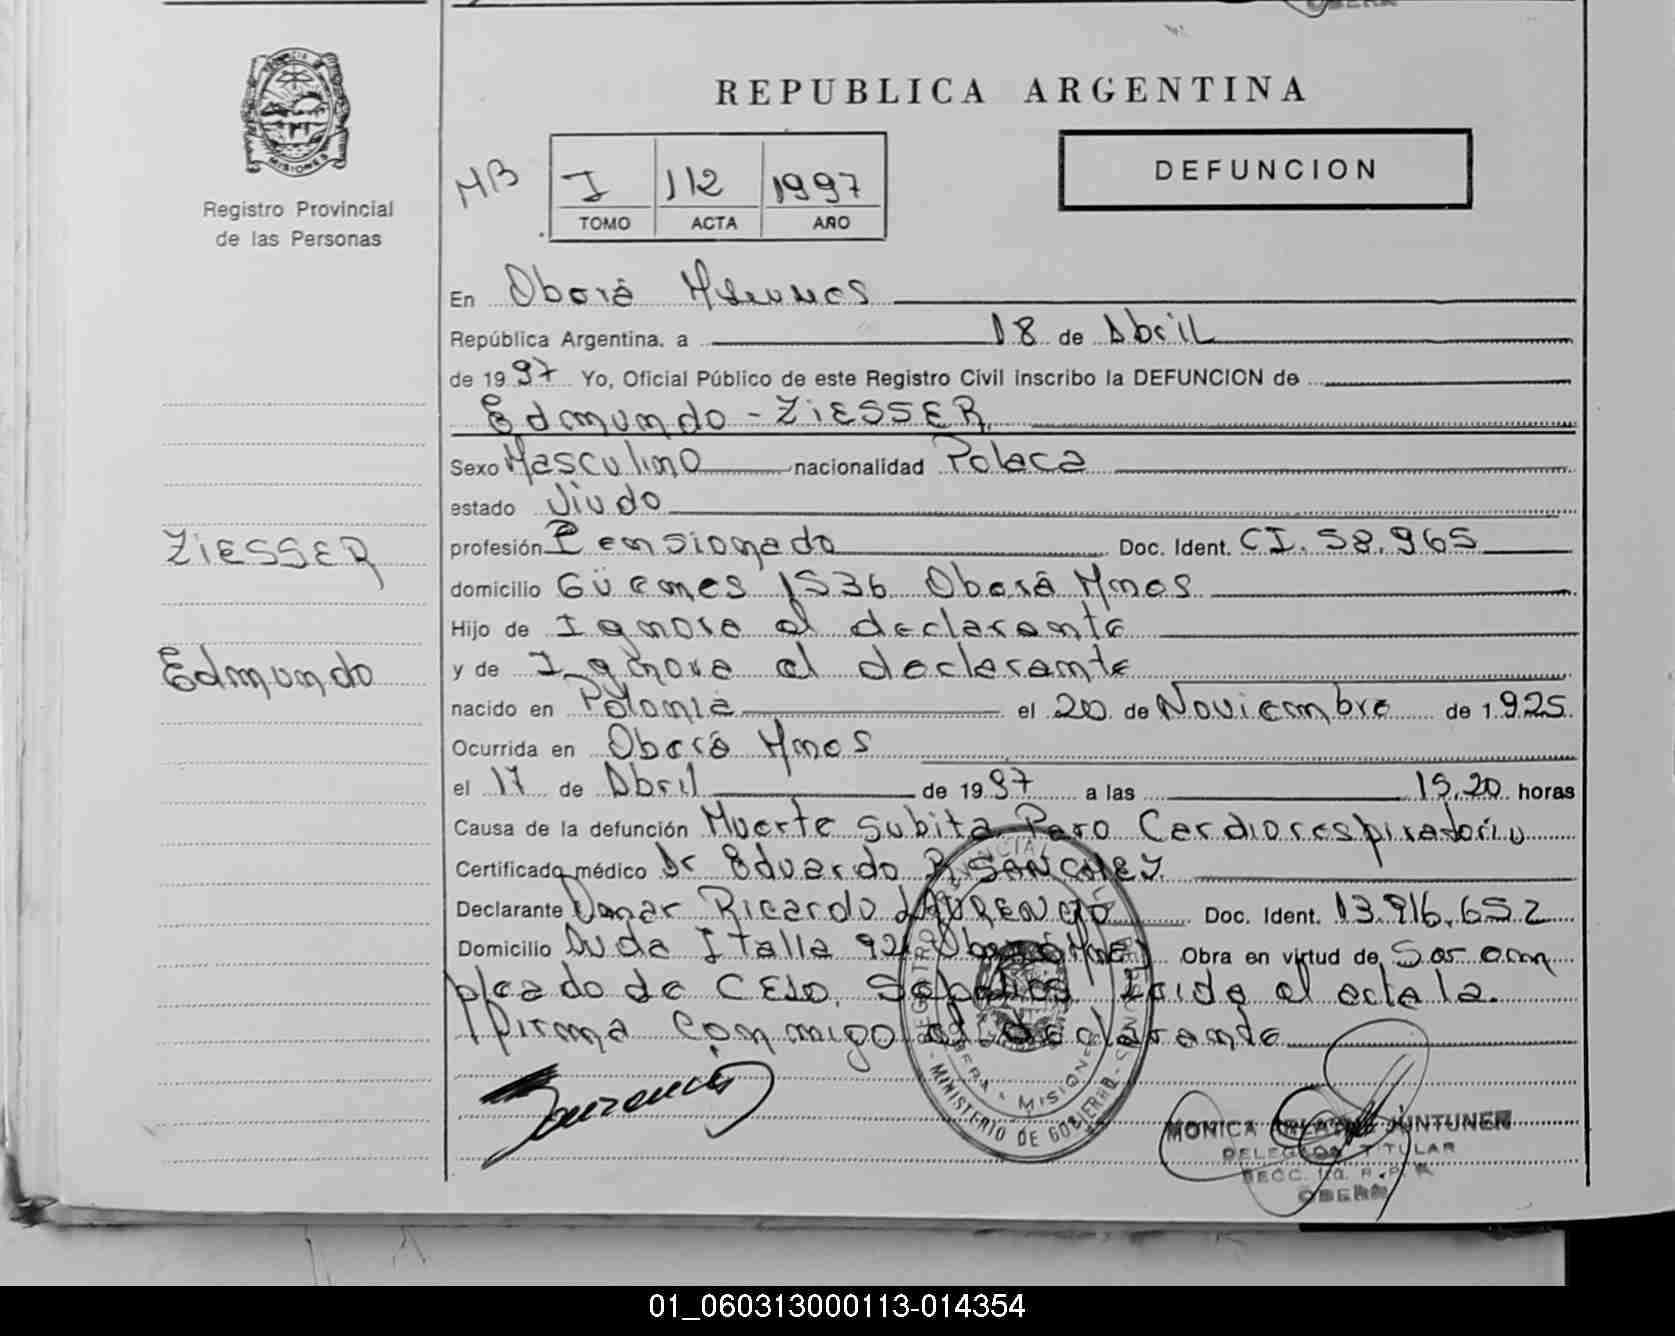 REPUBLICA ARGENTINA
DEFUNCION
MISIONES
Registro Provincial
de las Personas
HB
I 112 1997
TOMO ACTA AÑO
En Oberá Misiones
República Argentina, a 18 de Abril
de 1997 Yo, Oficial Público de este Registro Civil inscribo la DEFUNCION de
Edmundo - ZiESSER
Sexo Masculino nacionalidad Polaca
estado Viudo
ZiESSER
profesión Pensionado Doc. Ident. CI. 58.965
domicilio Güemes 1536 Oberá Mnes
Hijo de Ignora el declarante
Edmundo
y de Ignora el declarante
nacido en Polonia el 20 de Noviembre de 1.925.
Ocurrida en Oberá Mnes
el 17 de Abril de 1997 a las 15,20 horas
Causa de la defunción Muerte subita Paro Cardiorespiratorio
Certificado médico Dr Eduardo R. SANCHEZ
Declarante Omar Ricardo LAURENCIO Doc. Ident. 13.916.652
Domicilio Avda Italia 92 Oberá Mnes Obra en virtud de Ser em
pleado de CELO. Sepelios Leida el acta la
firma conmigo el declarante
REGISTRO PROVINCIAL
OBERA MISIONES
MINISTERIO DE GOBIERNO
MONICA JUNTUNEN
DELEGADA TITULAR
SECC. R.P.
OBERA
01_060313000113-014354